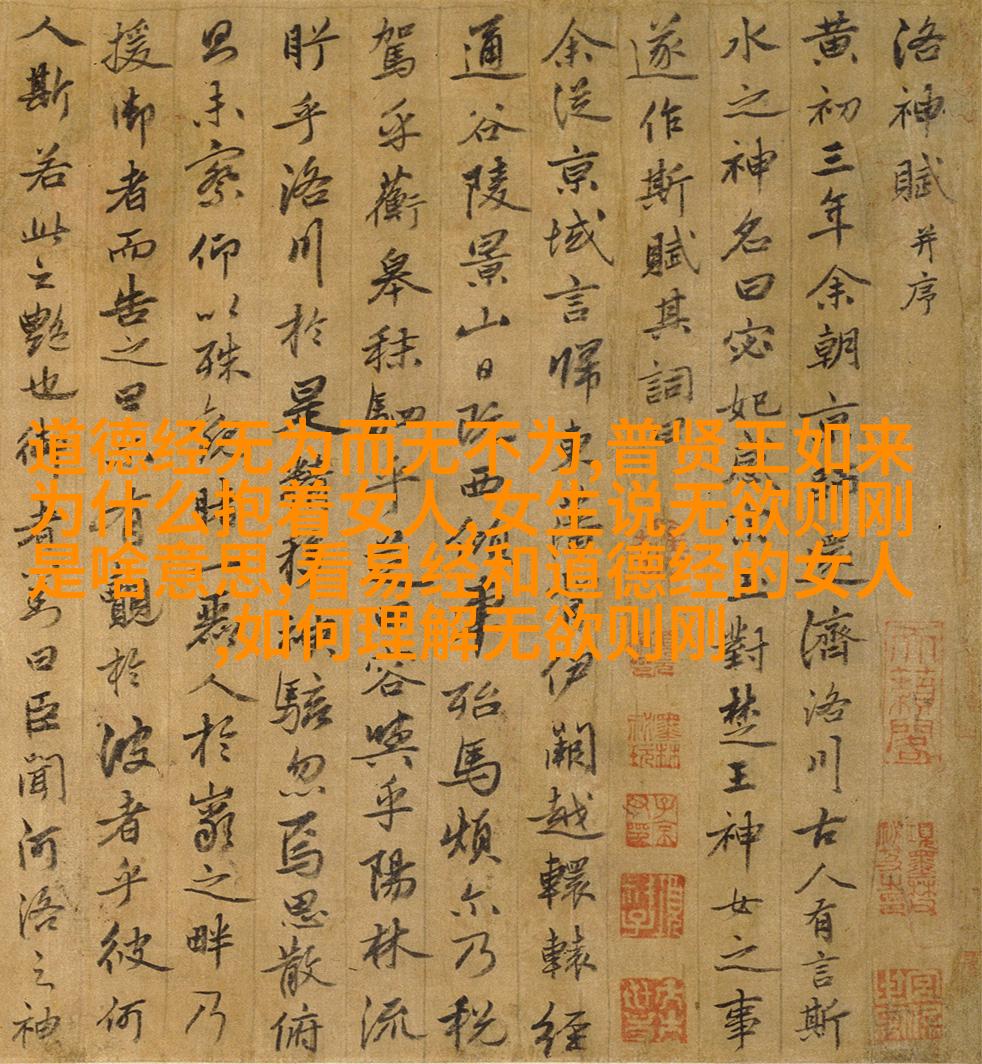 洛神賦并序
黄初三年余朝京師還濟洛川古人有言斯
水之神名曰宓妃感宋玉對楚王神女之事
遂作斯賦其詞曰
余從京域言歸東藩背伊闕越轘轅經
通谷陵景山日既西傾車殆馬煩尒乃税
駕乎蘅皋秣駟乎芝田容與乎陽林流
眄乎洛川於是精移神駭忽焉思散俯
則未察仰以殊觀睹一麗人於巖之畔乃
援御者而告之曰尒有覿於彼者乎彼何
人斯若此之艷也御者對曰臣聞河洛之神
道德经无为而无不为,普贤王如来
为什么抱着女人,女生说无欲则刚
是啥意思,看易经和道德经的女人
,如何理解无欲则刚